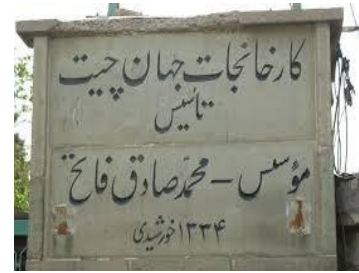 کارخانجات جهان چیت
تأسیس
مؤسس – محمد صادق فاتح
۱۳۳۴ خورشیدی